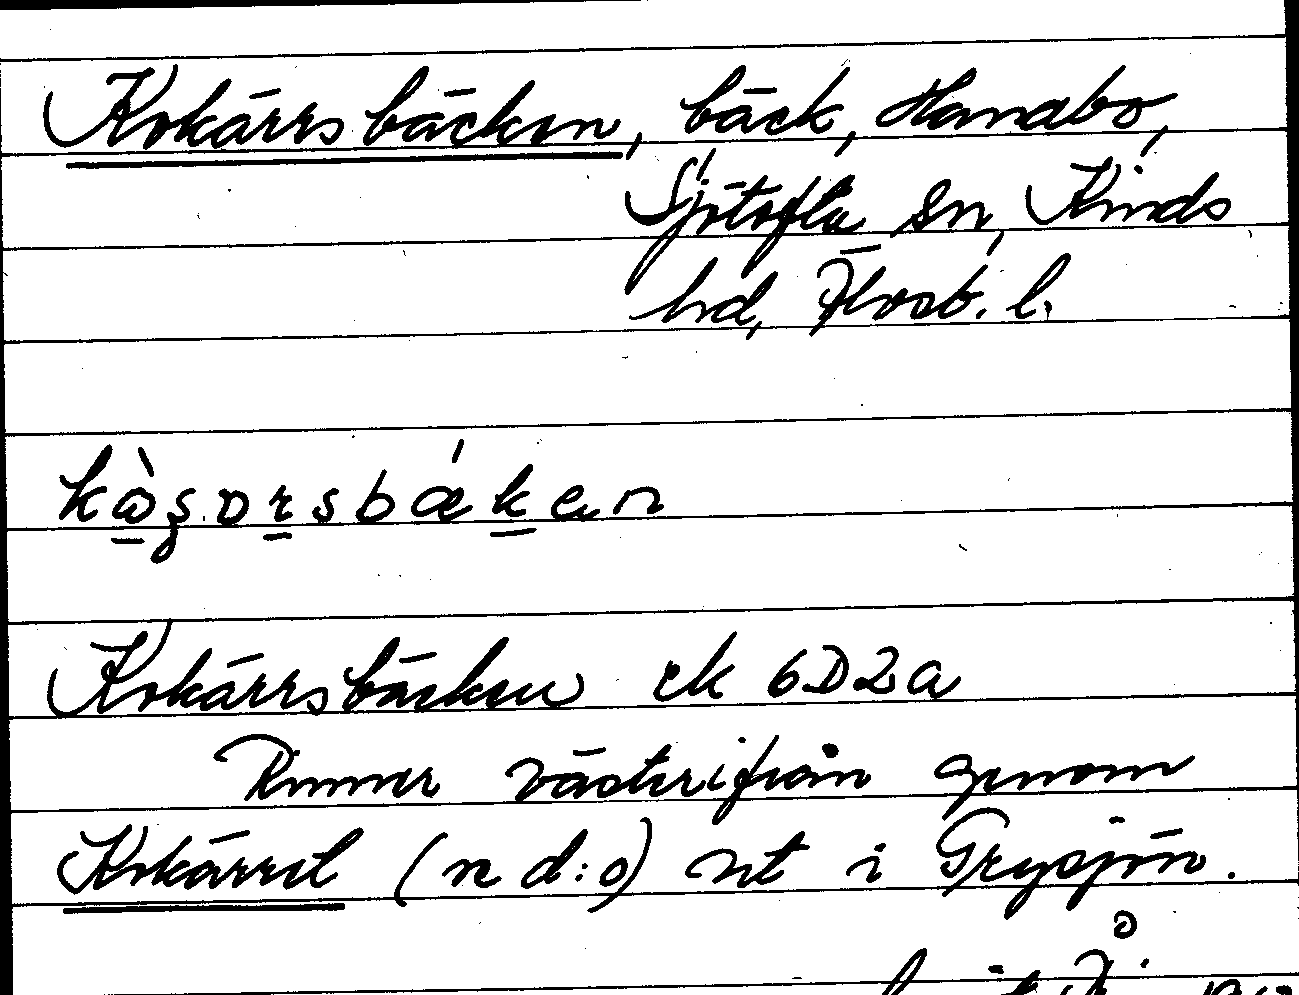 Kokärrsbäcken, bäck, Hanabo,
Sjötofta sn, Kinds
hd, Älvsb. l.
Kokärrsbäcken ek 6D2a
Rinner västerifrån genom
Kokärret (se d:o) ut i Grysjön.